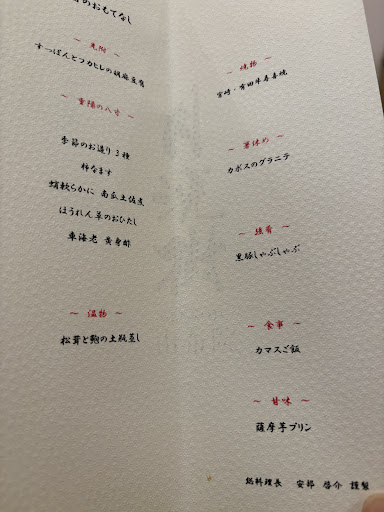 のおもてなし
～ 先附 ～
すっぽんとフカヒレの胡麻豆腐
～ 重陽の八寸 ～
季節のお造り3種
柿なます
蛸軟らかに 南瓜土佐煮
ほうれん草のおひたし
車海老 黄身酢
～ 温物 ～
松茸と鱧の土瓶蒸し
～ 焼物 ～
宮崎・有田牛寿喜焼
～ 箸休め ～
カボスのグラニテ
～ 強肴 ～
黒豚しゃぶしゃぶ
～ 食事 ～
カマスご飯
～ 甘味 ～
薩摩芋プリン
総料理長 安部 啓介 謹製